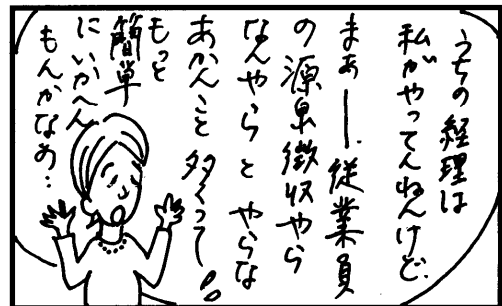 うちの経理は
私がやってんねんけど.
まぁー.従業員
の源泉徴収やら
なんやらと やらな
あかんこと 多くって―!!
もっと
簡単
にいかへん
もんかなあ…